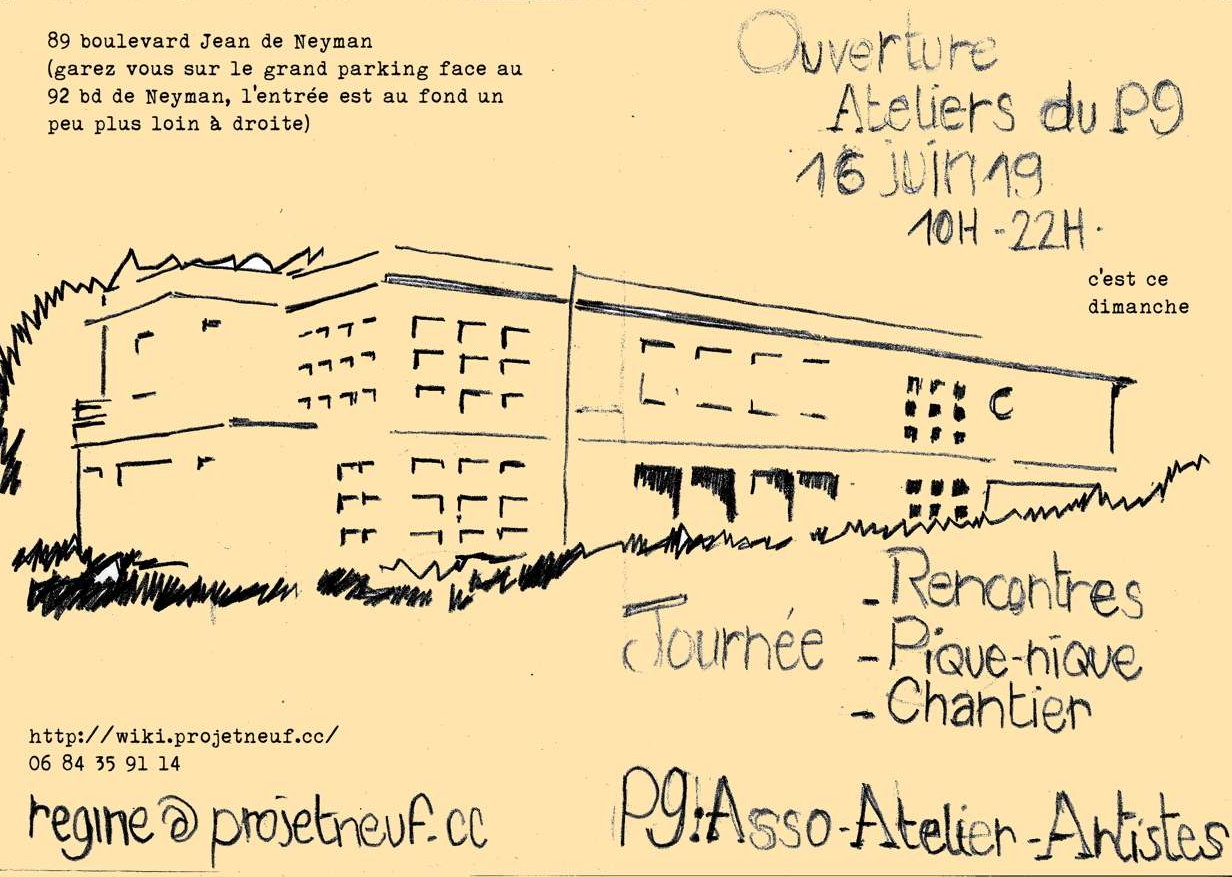 89 boulevard Jean de Neyman
(garez vous sur le grand parking face au
92 bd de Neyman, l'entrée est au fond un
peu plus loin à droite)
Ouverture
Ateliers du P9
16 juin 19
10H - 22H.
c'est ce
dimanche
C
Journée
- Rencontres
- Pique-nique
- Chantier
http://wiki.projetneuf.cc/
06 84 35 91 14
regine@projetneuf.cc
P9:Asso-Atelier-Artistes